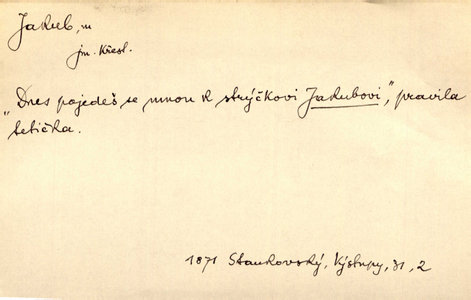 Jakub, m
jm. křest.
„Dnes pojedeš se mnou k strýčkovi Jakubovi,“ pravila
tetička.
1871 Stankovský, Výstupy, 31, 2